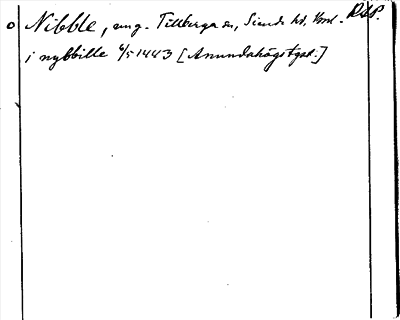 Nibble, ung. Tillberga sn, Siende hd, Vml. RAP.
i nybbille 4/5 1443 [Anundahögstgat.]